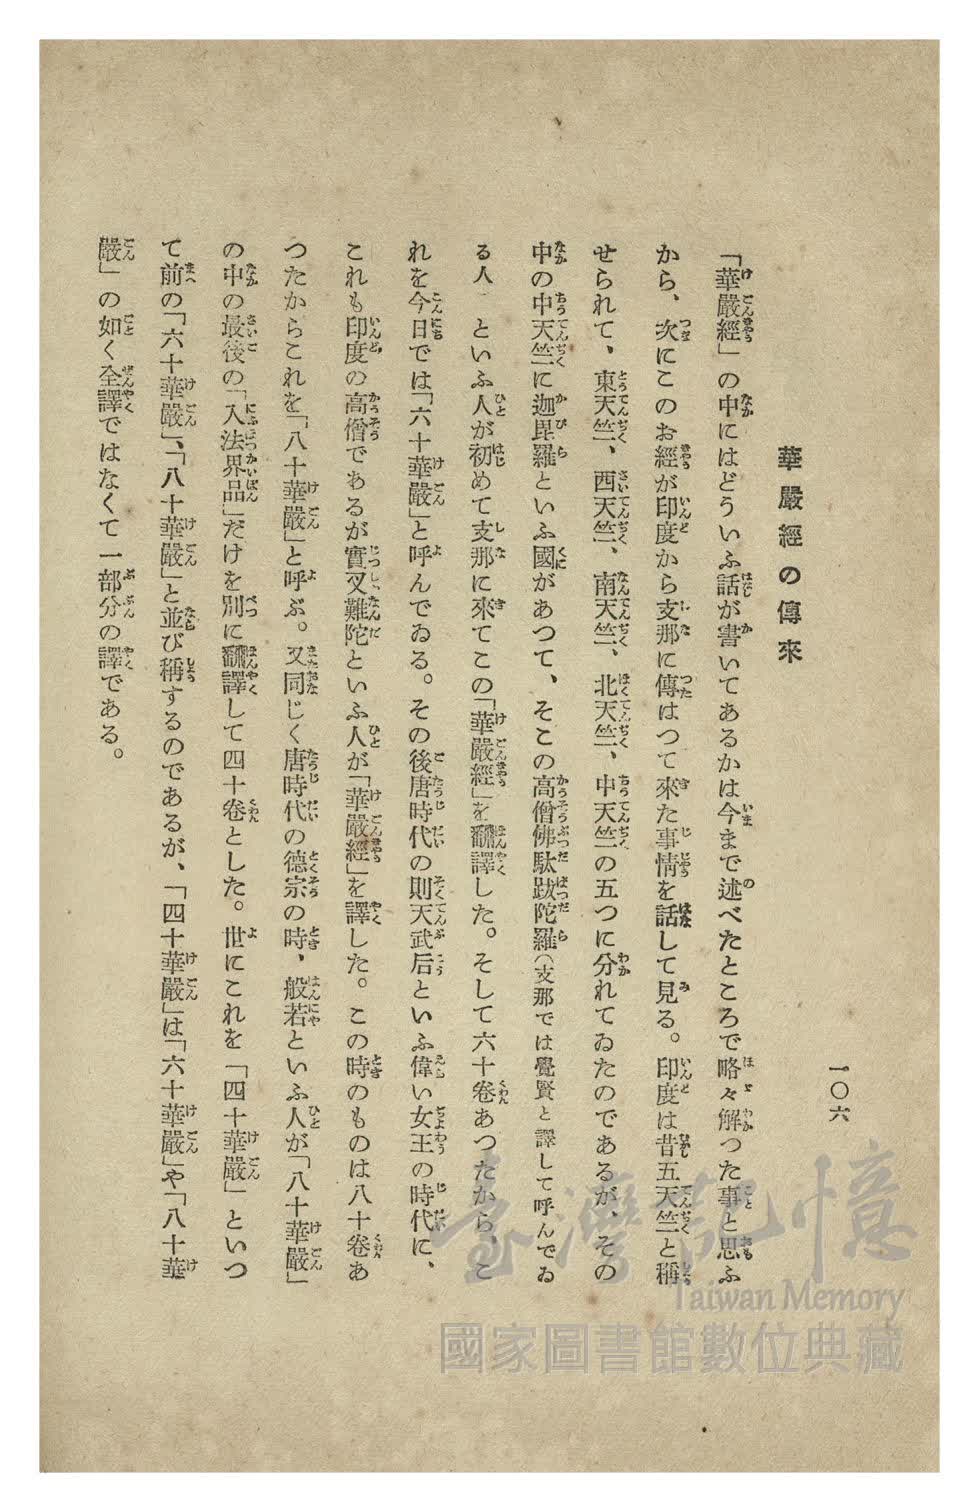 一〇六
華嚴經の傳來
「華嚴經」の中にはどういふ話が書いてあるかは今まで述べたところで略々解つた事と思ふ
から、次にこのお經が印度から支那に傳はつて來た事情を話して見る。印度は昔五天竺と稱
せられて、東天竺、西天竺、南天竺、北天竺、中天竺の五つに分れてゐたのであるが、その
中の中天竺に迦毘羅といふ國があつて、そこの高僧佛馱跋陀羅(支那では覺賢と譯して呼んでゐ
る人 といふ人が初めて支那に來てこの「華嚴經」を飜譯した。そして六十卷あつたから、こ
れを今日では「六十華嚴」と呼んでゐる。その後唐時代の則天武后といふ偉い女王の時代に、
これも印度の高僧であるが實叉難陀といふ人が「華嚴經」を譯した。この時のものは八十卷あ
つたからこれを「八十華嚴」と呼ぶ。又同じく唐時代の德宗の時、般若といふ人が「八十華嚴」
の中の最後の「入法界品」だけを別に飜譯して四十卷とした。世にこれを「四十華嚴」といつ
て前の「六十華嚴」、「八十華嚴」と並び稱するのであるが、「四十華嚴」は「六十華嚴」や「八十華
嚴」の如く全譯ではなくて一部分の譯である。
臺灣記憶
Taiwan Memory
國家圖書館數位典藏